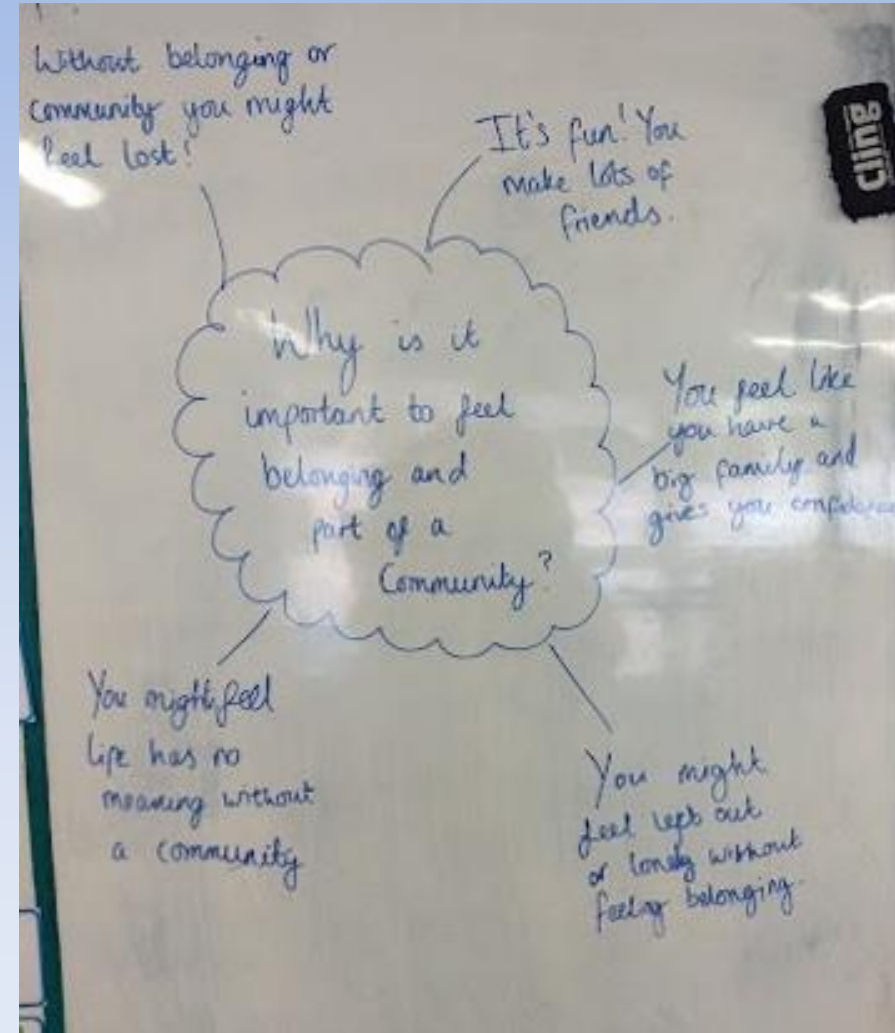 Without belonging or
Community you might
feel lost!
It's fun! You
make lots of
friends.
cling
Why is it
important to feel
belonging and
part of a
Community?
You feel like
you have a
big family and
gives you confidence
You might feel
life has no
meaning without
a community
You might
feel left out
or lonely without
feeling belonging.